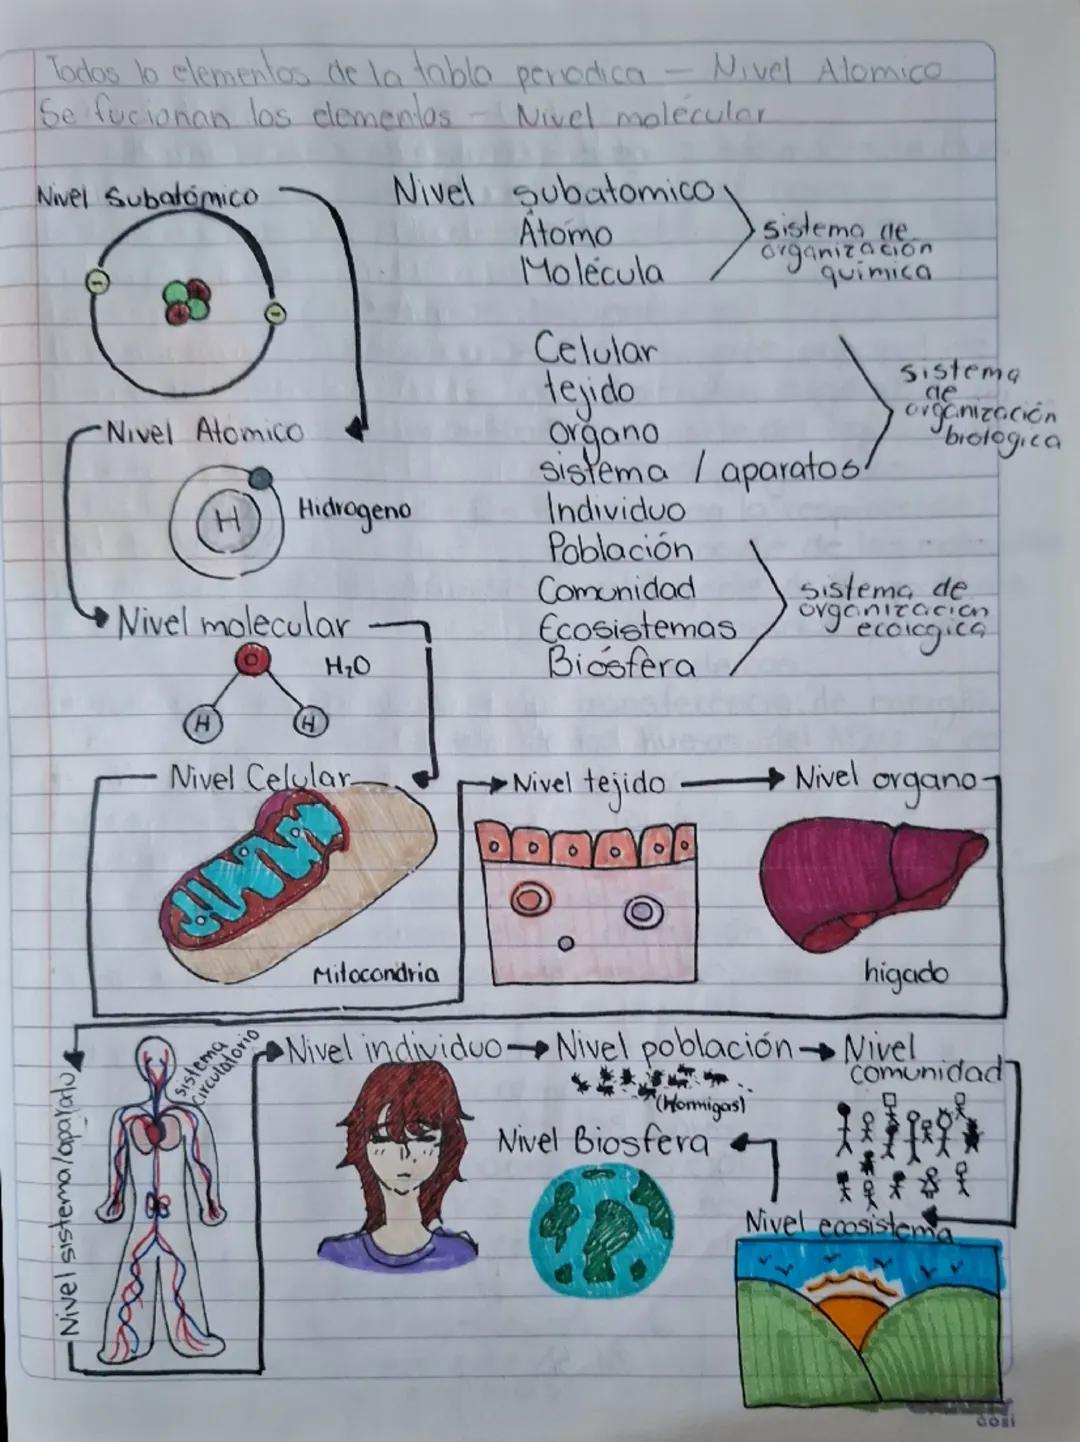 Todos lo elementos de la tabla periodica - Nivel Atomico
Se fucionan los elementos - Nivel molécular
Nivel Subatómico
Nivel subatomico
Átomo
Molécula
sistema de
organización
química
Celular
tejido
organo
sistema / aparatos
Individuo
Población
Comunidad
Ecosistemas
Biósfera
sistema
de
organización
biologica
sistema de
organizacion
ecologica
Nivel Atomico
H
Hidrogeno
Nivel molecular
O
H₂O
H
H
Nivel Celular
Mitocondria
Nivel tejido
Nivel organo
higado
Nivel sistema/aparato
sistema
circulatorio
Nivel individuo
Nivel población
(Hormigas)
Nivel
comunidad
Nivel Biosfera
Nivel ecosistema